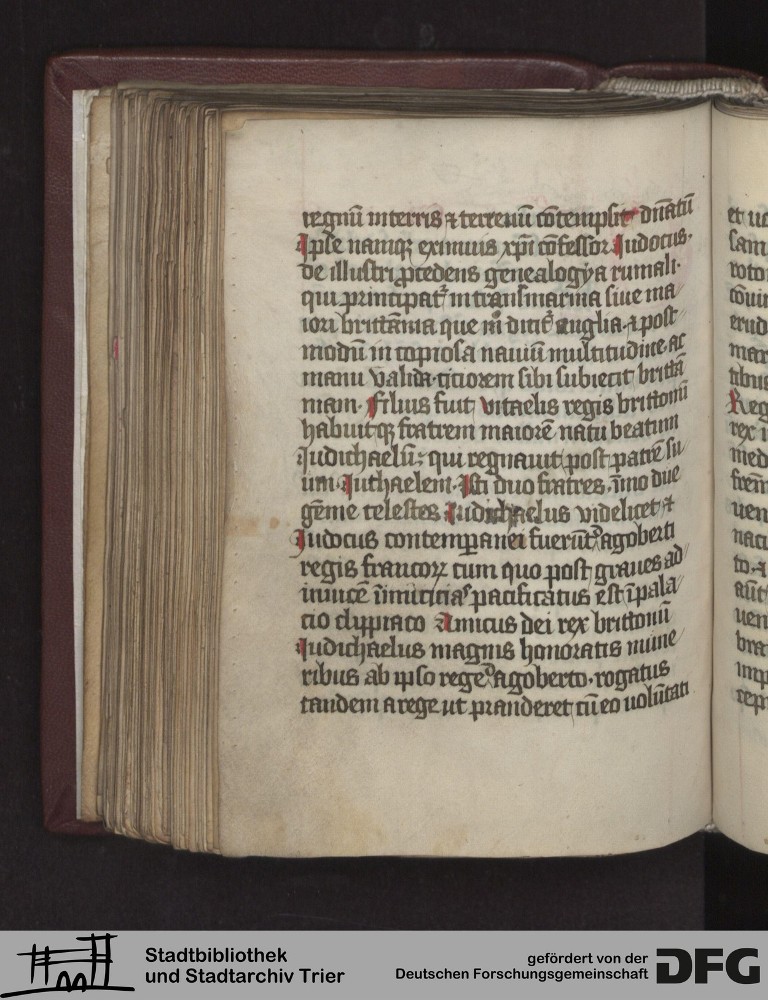 regnū in terris ⁊ terrenū cōtempsit dn̄atū
Ipse namq; eximius xp̄i cōfessor Iudocus·
de illustri ꝓcedens genealogya rurmali·
qui principat᷑ in transmarina siue ma
iori brittānia que nō dicit᷑ anglia·⁊ post
modū in copiosa nauiū multitudine ac
manu valida· citiorem sibi subiecit brittā
niam· Filius fuit vitaelis regis brittonū
habuitq; fratrem maiorē natu beatum
Iudichaelū: qui regnauit post patrē su
um Iuthaelem· Isti duo fratres· īmo due
gēme celestes Iudichaelus videlicet ⁊
Iudocus contemꝑanei fuerūt dagoberti
regis francoꝝ cum quo post graues ad
inuicē inimicicias pacificatus est ī pala
cio clyppiaco Amicus dei rex brittonū
Iudichaelus magnis honoratis mune
ribus ab ipso rege dagoberto· rogatus
tandem a rege ut pranderet cū eo uolūtati
et
sam
Reg
rex
to·⁊
Stadtbibliothek
und Stadtarchiv Trier
gefördert von der
Deutschen Forschungsgemeinschaft
DFG